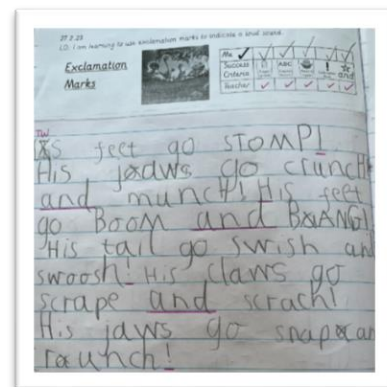 27.2.23
LO. I am learning to use exclamation marks to indicate a loud sound.
Exclamation
Marks
Me
Success
Criteria
ABC
and
Teacher
TW
feet go STOMP!
His jaws go crunch
and munch! His feet
go Boom and BANG!
His tail go swish an
swoosh! His claws go
scrape and scrach!
His jaws go snap an
!